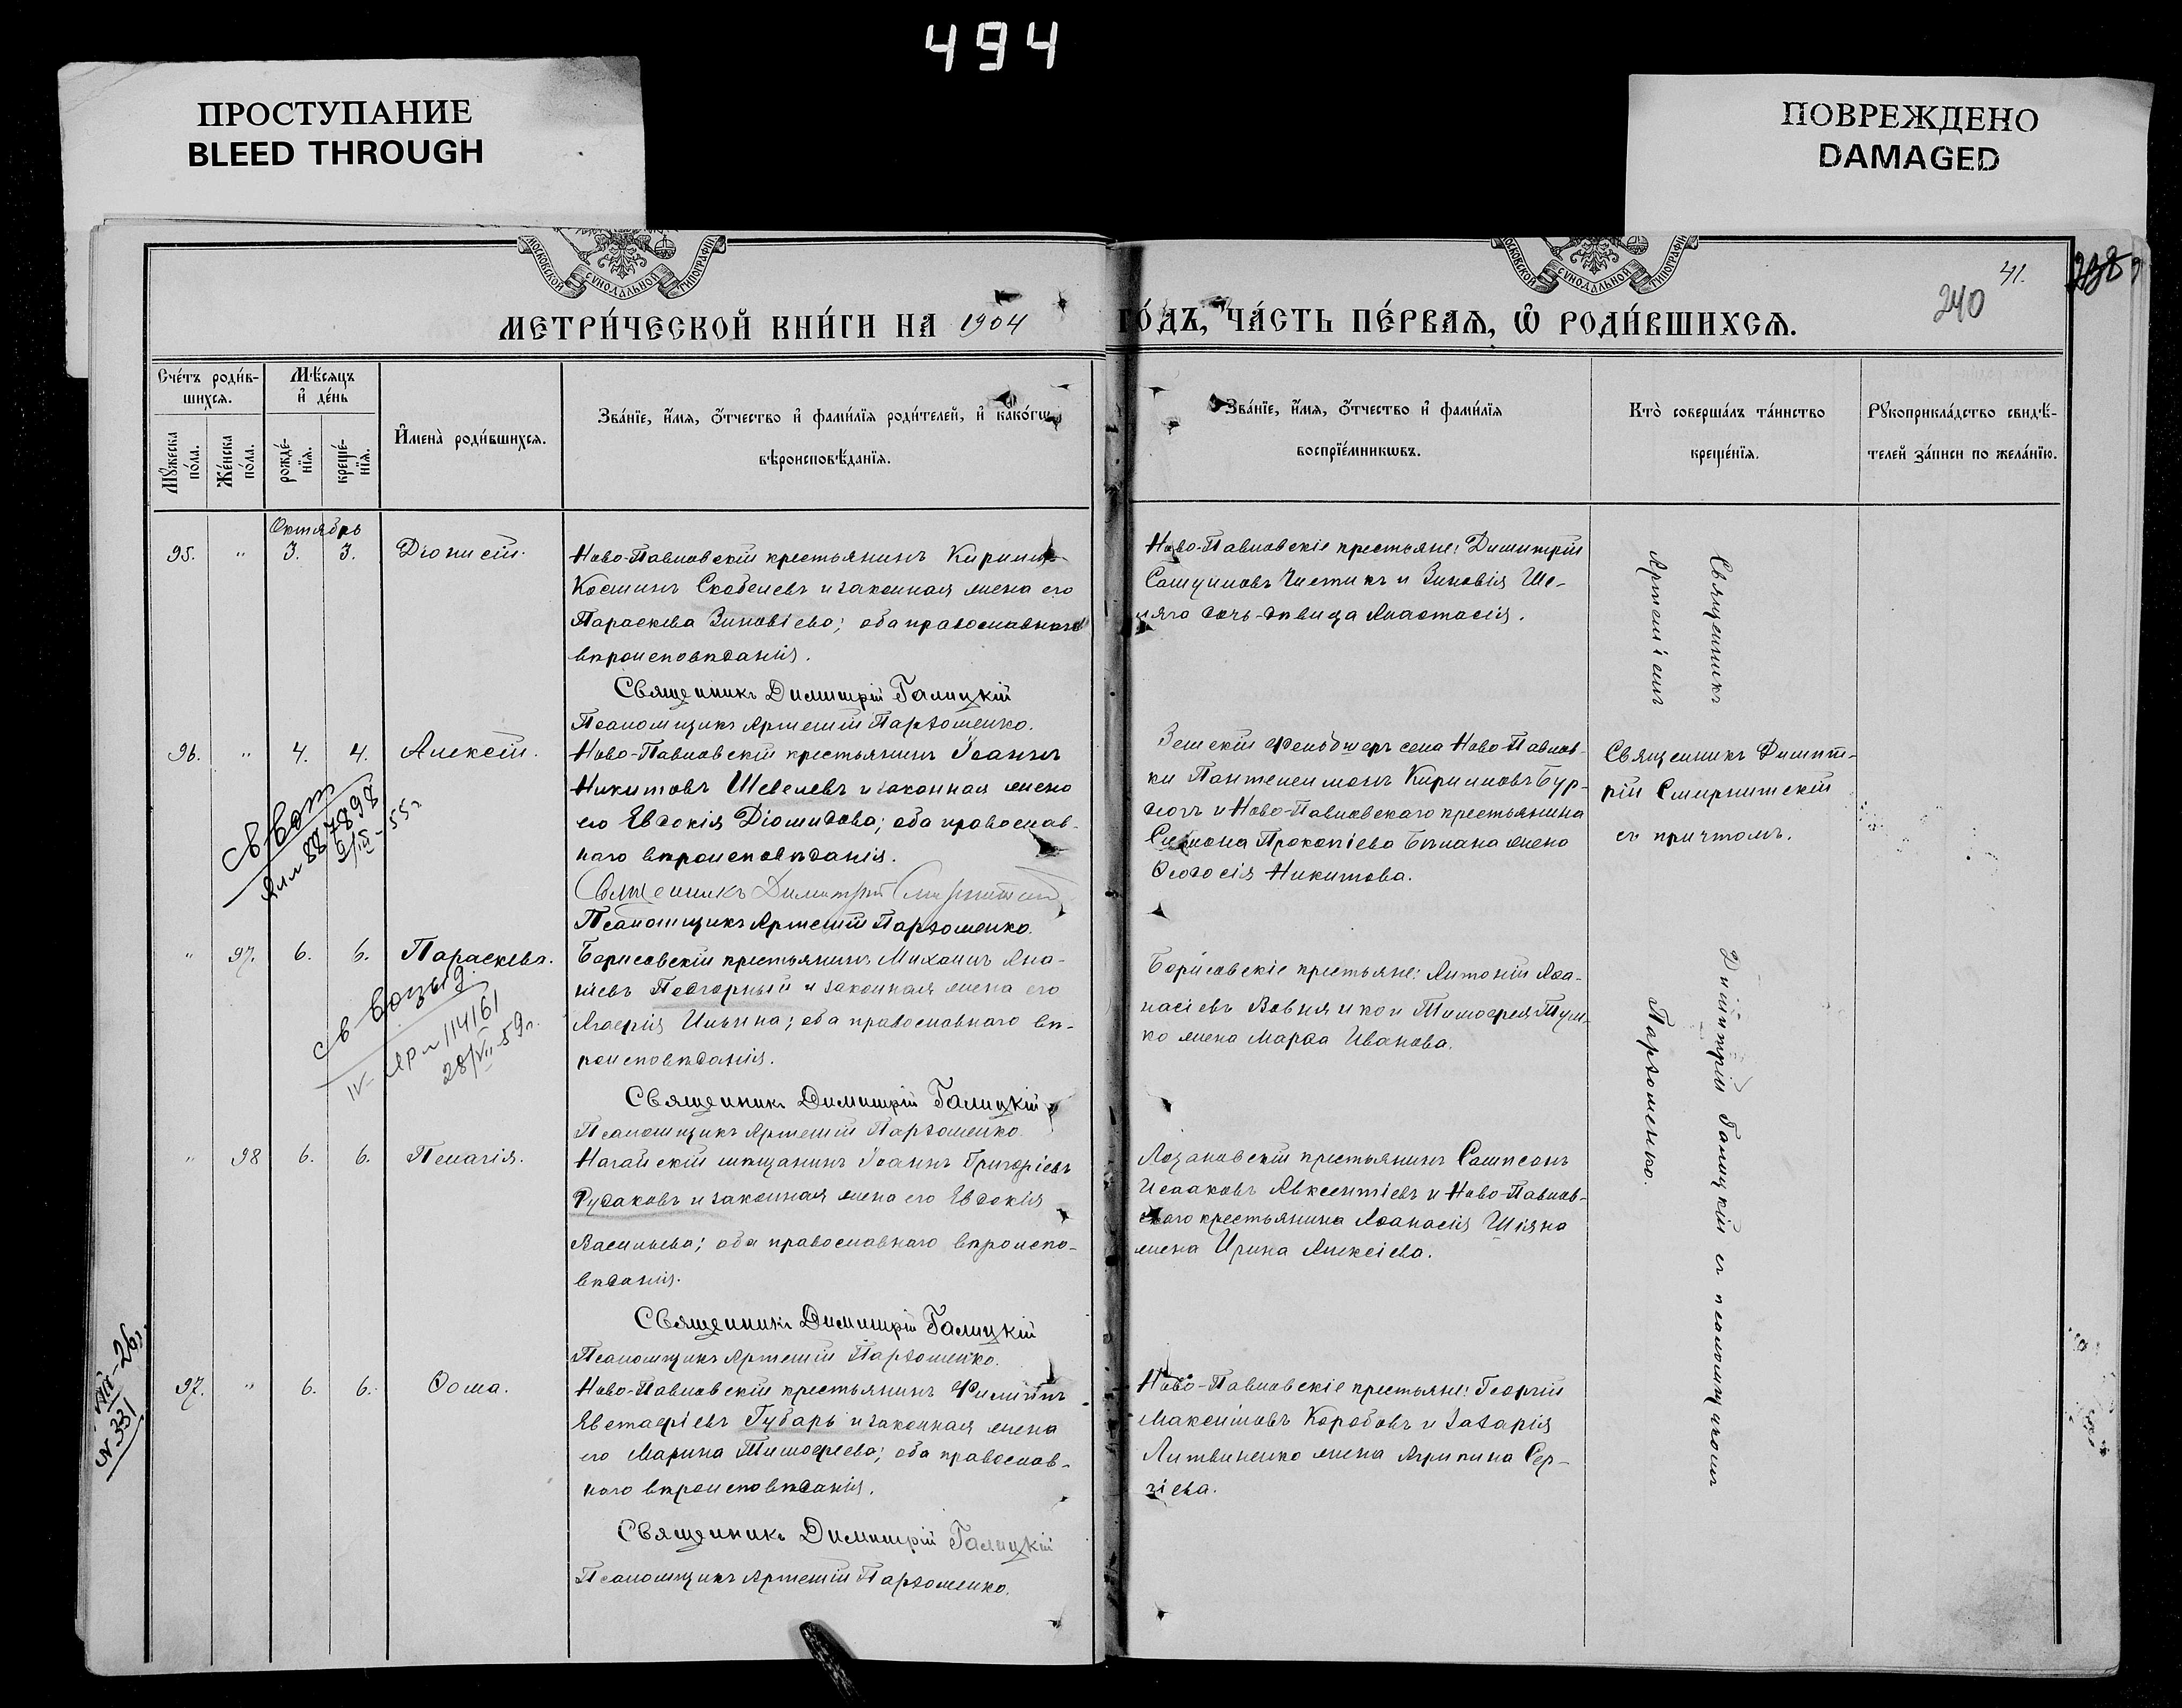 494
ПРОСТУПАНИЕ
BLEED THROUGH
ПОВРЕЖДЕНО
DAMAGED
МОСКОВСКОЙ СѴНОДАЛЬНОЙ ТИПОГРАФІИ
МОСКОВСКОЙ СѴНОДАЛЬНОЙ ТИПОГРАФІИ
41.
240
238
МЕТРИ́ЧЕСКОЙ КНИ́ГИ НА 1904 ГО́ДЪ, ЧА́СТЬ ПЕ́РВАѦ, Ѡ҆ РОДИ́ВШИХСѦ.
Сче́тъ роди́в-
шихсѧ.
Мꙋ́жеска по́ла.
Же́нска по́ла.
Мѣ́сѧцъ
и҆ де́нь
рожде́-
нїѧ.
креще́-
нїѧ.
И҆мена̀ роди́вшихсѧ.
Зва́нїе, и҆́мѧ, ѻ҆́тчество и҆ фами́лїѧ роди́телей, и҆ како́гѡ
вѣроисповѣ́данїѧ.
Зва́нїе, и҆́мѧ, ѻ҆́тчество и҆ фами́лїѧ
воспрїе́мникѡвъ.
Кто̀ соверша́лъ та́инство
креще́нїѧ.
Рꙋкоприкла́дство свидѣ́-
телей за́писи по жела́нїю.
Октябрь
95. " 3. 3. Діонисій.
Ново-Павловскій крестьянинъ Кириллъ
Косминъ Скобелевъ и законная жена его
Параскева Зиновіева; оба православнаго
вѣроисповѣданія.
Священникъ Димитрій Галицкій
Псаломщикъ Артемій Пархоменко.
Ново-Павловскіе крестьяне: Димитрій
Самуиловъ Чистикъ и Зиновія Ше-
ляго дочь-дѣвица Анастасія.
96. " 4. 4. Алексій.
Ново-Павловскій крестьянинъ Іоаннъ
Никитовъ Шевелевъ и законная жена
его Евдокія Діомидова; оба православ-
наго вѣроисповѣданія.
Священникъ Димитрій Смирнитскій
Псаломщикъ Артемій Пархоменко.
Земскій фельдшеръ села Ново-Павлов-
ки Пантелеимонъ Кирилловъ Бур-
и Ново-Павловскаго крестьянина
Симона Прокопіева жена
Ѳеодосія Никитова.
Священникъ Димит-
рій Смирнитскій
съ причтомъ.
887898
55г
" 97. 6. 6. Параскева.
Борисовскій крестьянинъ Михаилъ Ана-
ніевъ Подгорный и законная жена его
Агафія Ильина; оба православнаго вѣ-
роисповѣданія.
Священникъ Димитрій Галицкій
Псаломщикъ Артемій Пархоменко.
Борисовскіе крестьяне: Антоній Аѳа-
насіевъ Вовня и Тимофея
ко жена Марѳа Иванова.
114161
28/VII-59г.
" 98 6. 6. Пелагія.
Ногайскій мѣщанинъ Іоаннъ Григоріевъ
Рудаковъ и законная жена его Евдокія
Васильева; оба православнаго вѣроиспо-
вѣданія.
Священникъ Димитрій Галицкій
Псаломщикъ Артемій Пархоменко.
Лозановскій крестьянинъ Сампсонъ
Исааковъ Авксентіевъ и Ново-Павлов-
скаго крестьянина Аѳанасія Шіяна
жена Ирина Алексіева.
97. " 6. 6. Ѳома.
Ново-Павловскій крестьянинъ Филиппъ
Евстафіевъ Губарь и законная жена
его Марина Тимофеева; оба православ-
наго вѣроисповѣданія.
Священникъ Димитрій Галицкій
Псаломщикъ Артемій Пархоменко.
Ново-Павловскіе крестьяне: Георгій
Максимовъ Коробовъ и Захарія
Литвиненко жена Агрипина Сер-
гіева.
№ 331
Священникъ Димитрій Галицкій съ псаломщикомъ
Артеміемъ Пархоменко.